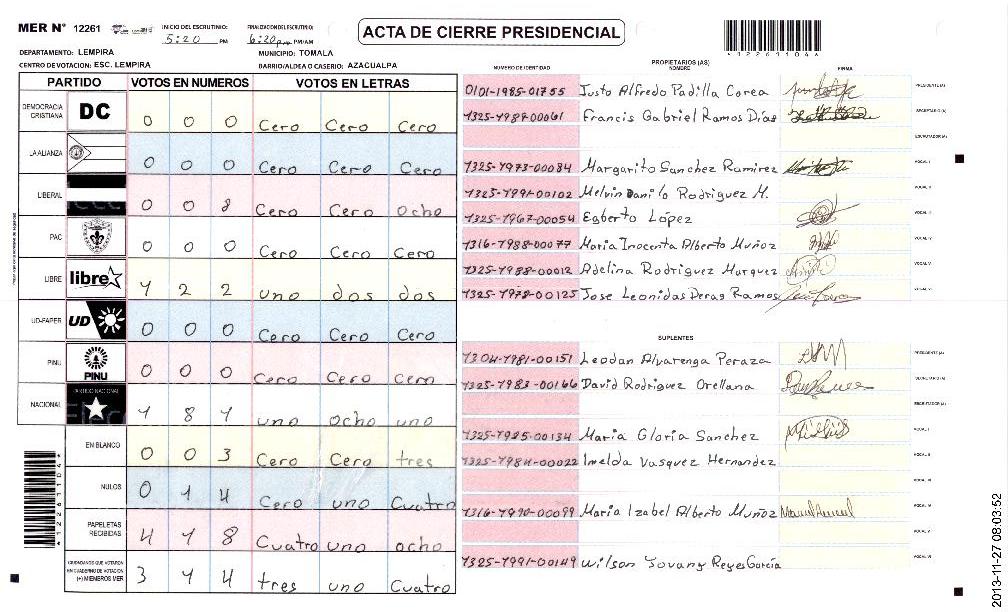 MER N° 12261
INICIO DEL ESCRUTINIO: 5:20 PM
FINALIZACION DEL ESCRUTINIO: 6:20 pm PM/AM
ACTA DE CIERRE PRESIDENCIAL
*12261104*
DEPARTAMENTO: LEMPIRA
MUNICIPIO: TOMALA
CENTRO DE VOTACION: ESC. LEMPIRA
BARRIO/ALDEA O CASERIO: AZACUALPA
PARTIDO VOTOS EN NUMEROS VOTOS EN LETRAS
DEMOCRACIA CRISTIANA DC 0 0 0 Cero Cero Cero
LA ALIANZA 0 0 0 Cero Cero Cero
LIBERAL 0 0 8 Cero Cero ocho
PAC 0 0 0 Cero Cero Cero
LIBRE libre 1 2 2 uno dos dos
UD-FAPER UD 0 0 0 Cero Cero Cero
PINU PINU 0 0 0 Cero Cero Cero
NACIONAL PARTIDO NACIONAL 1 8 1 uno ocho uno
EN BLANCO 0 0 3 Cero Cero tres
NULOS 0 1 4 Cero uno Cuatro
PAPELETAS RECIBIDAS 4 1 8 Cuatro uno ocho
CIUDADANOS QUE VOTARON EN CUADERNO DE VOTACION (+) MIEMBROS MER 3 1 4 tres uno Cuatro
PROPIETARIOS (AS)
NUMERO DE IDENTIDAD NOMBRE FIRMA
0101-1985-01755 Justo Alfredo Padilla Corea PRESIDENTE (A)
1325-1987-00061 Francis Gabriel Ramos Días SECRETARIO (A)
ESCRUTADOR (A)
1325-1973-00084 Margarito Sanchez Ramirez VOCAL I
1325-1991-00102 Melvin Danilo Rodriguez M. VOCAL II
1325-1967-00054 Egberto López VOCAL III
1316-1988-00077 Maria Inocenta Alberto Muñoz VOCAL IV
1325-1988-00012 Adelina Rodriguez Marquez VOCAL V
1325-1978-00125 Jose Leonidas Deras Ramos VOCAL VI
SUPLENTES
1304-1981-00151 Leodan Alvarenga Peraza PRESIDENTE (A)
1325-1983-00166 David Rodriguez Orellana SECRETARIO (A)
ESCRUTADOR (A)
1325-1985-00134 Maria Gloria Sanchez VOCAL I
1325-1984-00022 Imelda Vasquez Hernandez VOCAL II
VOCAL III
1316-1990-00099 Maria Izabel Alberto Muñoz VOCAL IV
VOCAL V
1325-1991-00149 Wilson Jovany Reyes Garcia VOCAL VI
2013-11-27 08:03:52